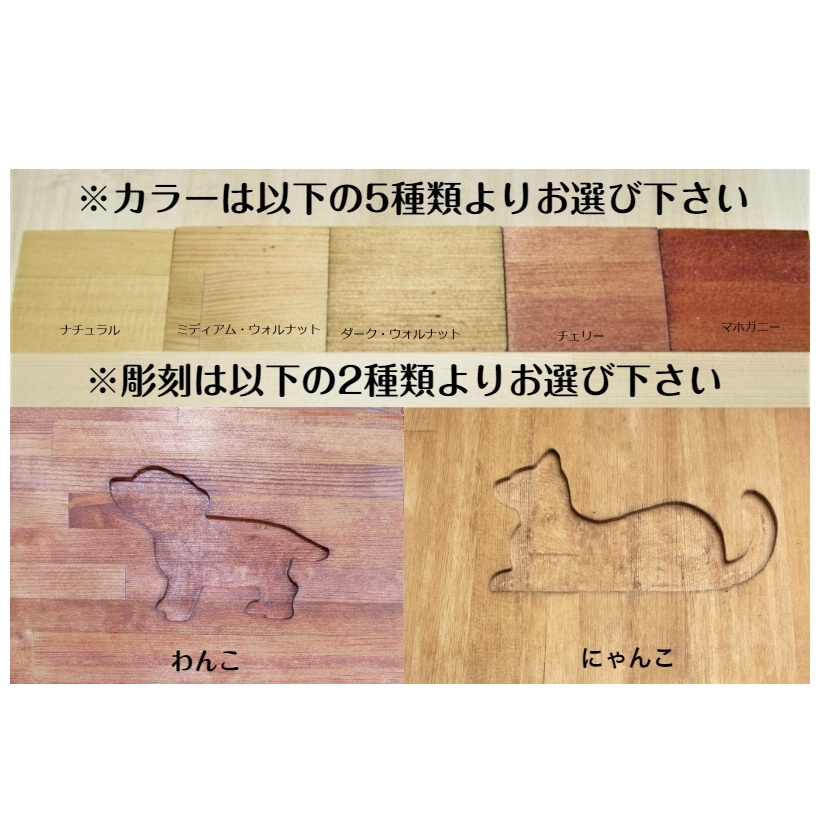 ※カラーは以下の5種類よりお選び下さい
ナチュラル
ミディアム・ウォルナット
ダーク・ウォルナット
チェリー
マホガニー
※彫刻は以下の2種類よりお選び下さい
わんこ
にゃんこ